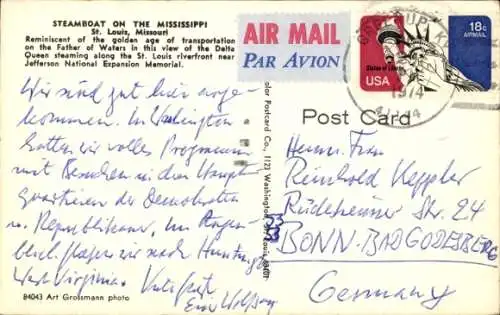 STEAMBOAT ON THE MISSISSIPPI
St. Louis, Missouri
Reminiscent of the golden age of transportation
on the Father of Waters in this view of the Delta
Queen steaming along the St. Louis riverfront near
Jefferson National Expansion Memorial.
AIR MAIL
PAR AVION
18c
AIRMAIL
USA
1974
Post Card
Wir sind gut hier ange-
kommen. In Washington
hatten wir volles Programm
mit Besuchen in den Haupt-
quartieren der Demokraten
u. Republikaner. Im Augen-
blick fahren wir nach Huntingt.
West Virginia.
Wolfgang
Reinhold Keppler
Rüdesheimer Str. 24
53
BONN-BAD GODESBERG
Germany
84043 Art Grossmann photo
color Postcard Co., 1121 Washington, St. Louis